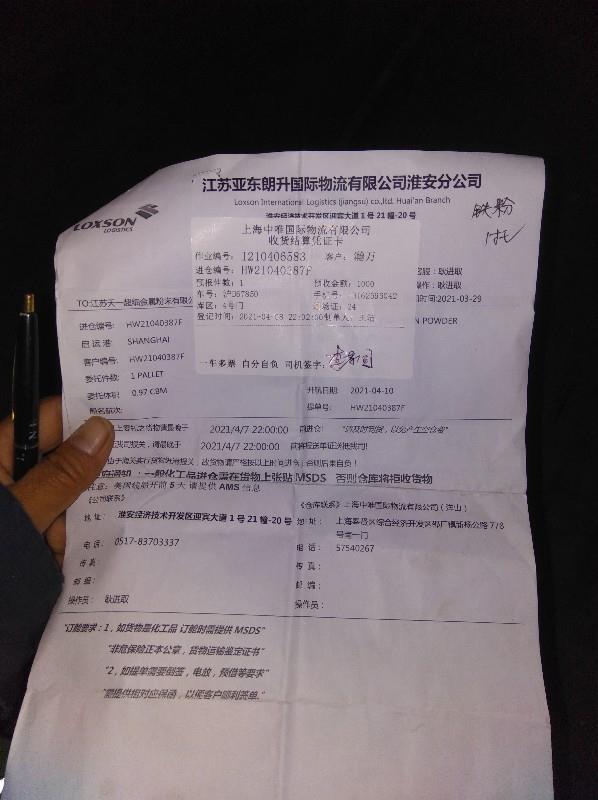 江苏亚东朗升国际物流有限公司淮安分公司
Loxson International Logistics (jiangsu) co.,ltd. Huai'an Branch
淮安经济技术开发区迎宾大道1号21幢-20号
LOXSON
LOGISTICS
铁粉
1托
上海中唯国际物流有限公司
收货结算凭证卡
作业编号: 1210406583 客户:
进仓编号: HW21040387F
预报件数: 1 预收金额: 1000
车号: 沪D67850 手机号:
库区: 4号门 24
登记时间: 2021-04-08 22:02:00 制单人:
一车多票 自分自负 司机签字:
耿进取
操作: 耿进取
时间:2021-03-29
TO:江苏天一超细金属粉末有限
N POWDER
进仓编号: HW21040387F
启运港: SHANGHAI
客户编号: HW21040387F
委托件数: 1 PALLET
委托体积: 0.97 CBM
船名航次:
开航日期: 2021-04-10
提单号: HW21040387F
2021/4/7 22:00:00 前进仓!
2021/4/7 22:00:00 前将报关单证送抵我司!
一般化工品进仓需在货物上张贴 MSDS 否则仓库将拒收货物
注意: 美国线船开前 5 天 请提供 AMS 信息
《公司联系》
地址: 淮安经济技术开发区迎宾大道 1 号 21 幢-20 号
电话: 0517-83703337
传真:
邮编:
操作员: 耿进取
《仓库联系》上海中唯国际物流有限公司(洋山)
地址: 上海奉贤区综合经济开发区邬厂镇新杨公路 778
号
电话: 57540267
传真:
邮编:
操作员:
"订舱要求: 1, 如货物是化工品 订舱时需提供 MSDS"
"非危保险正本公章, 货物运输鉴定证书"
"2, 如提单需要倒签, 电放, 预借等要求"
"需提供相对应保函, 以便客户顺利签单."